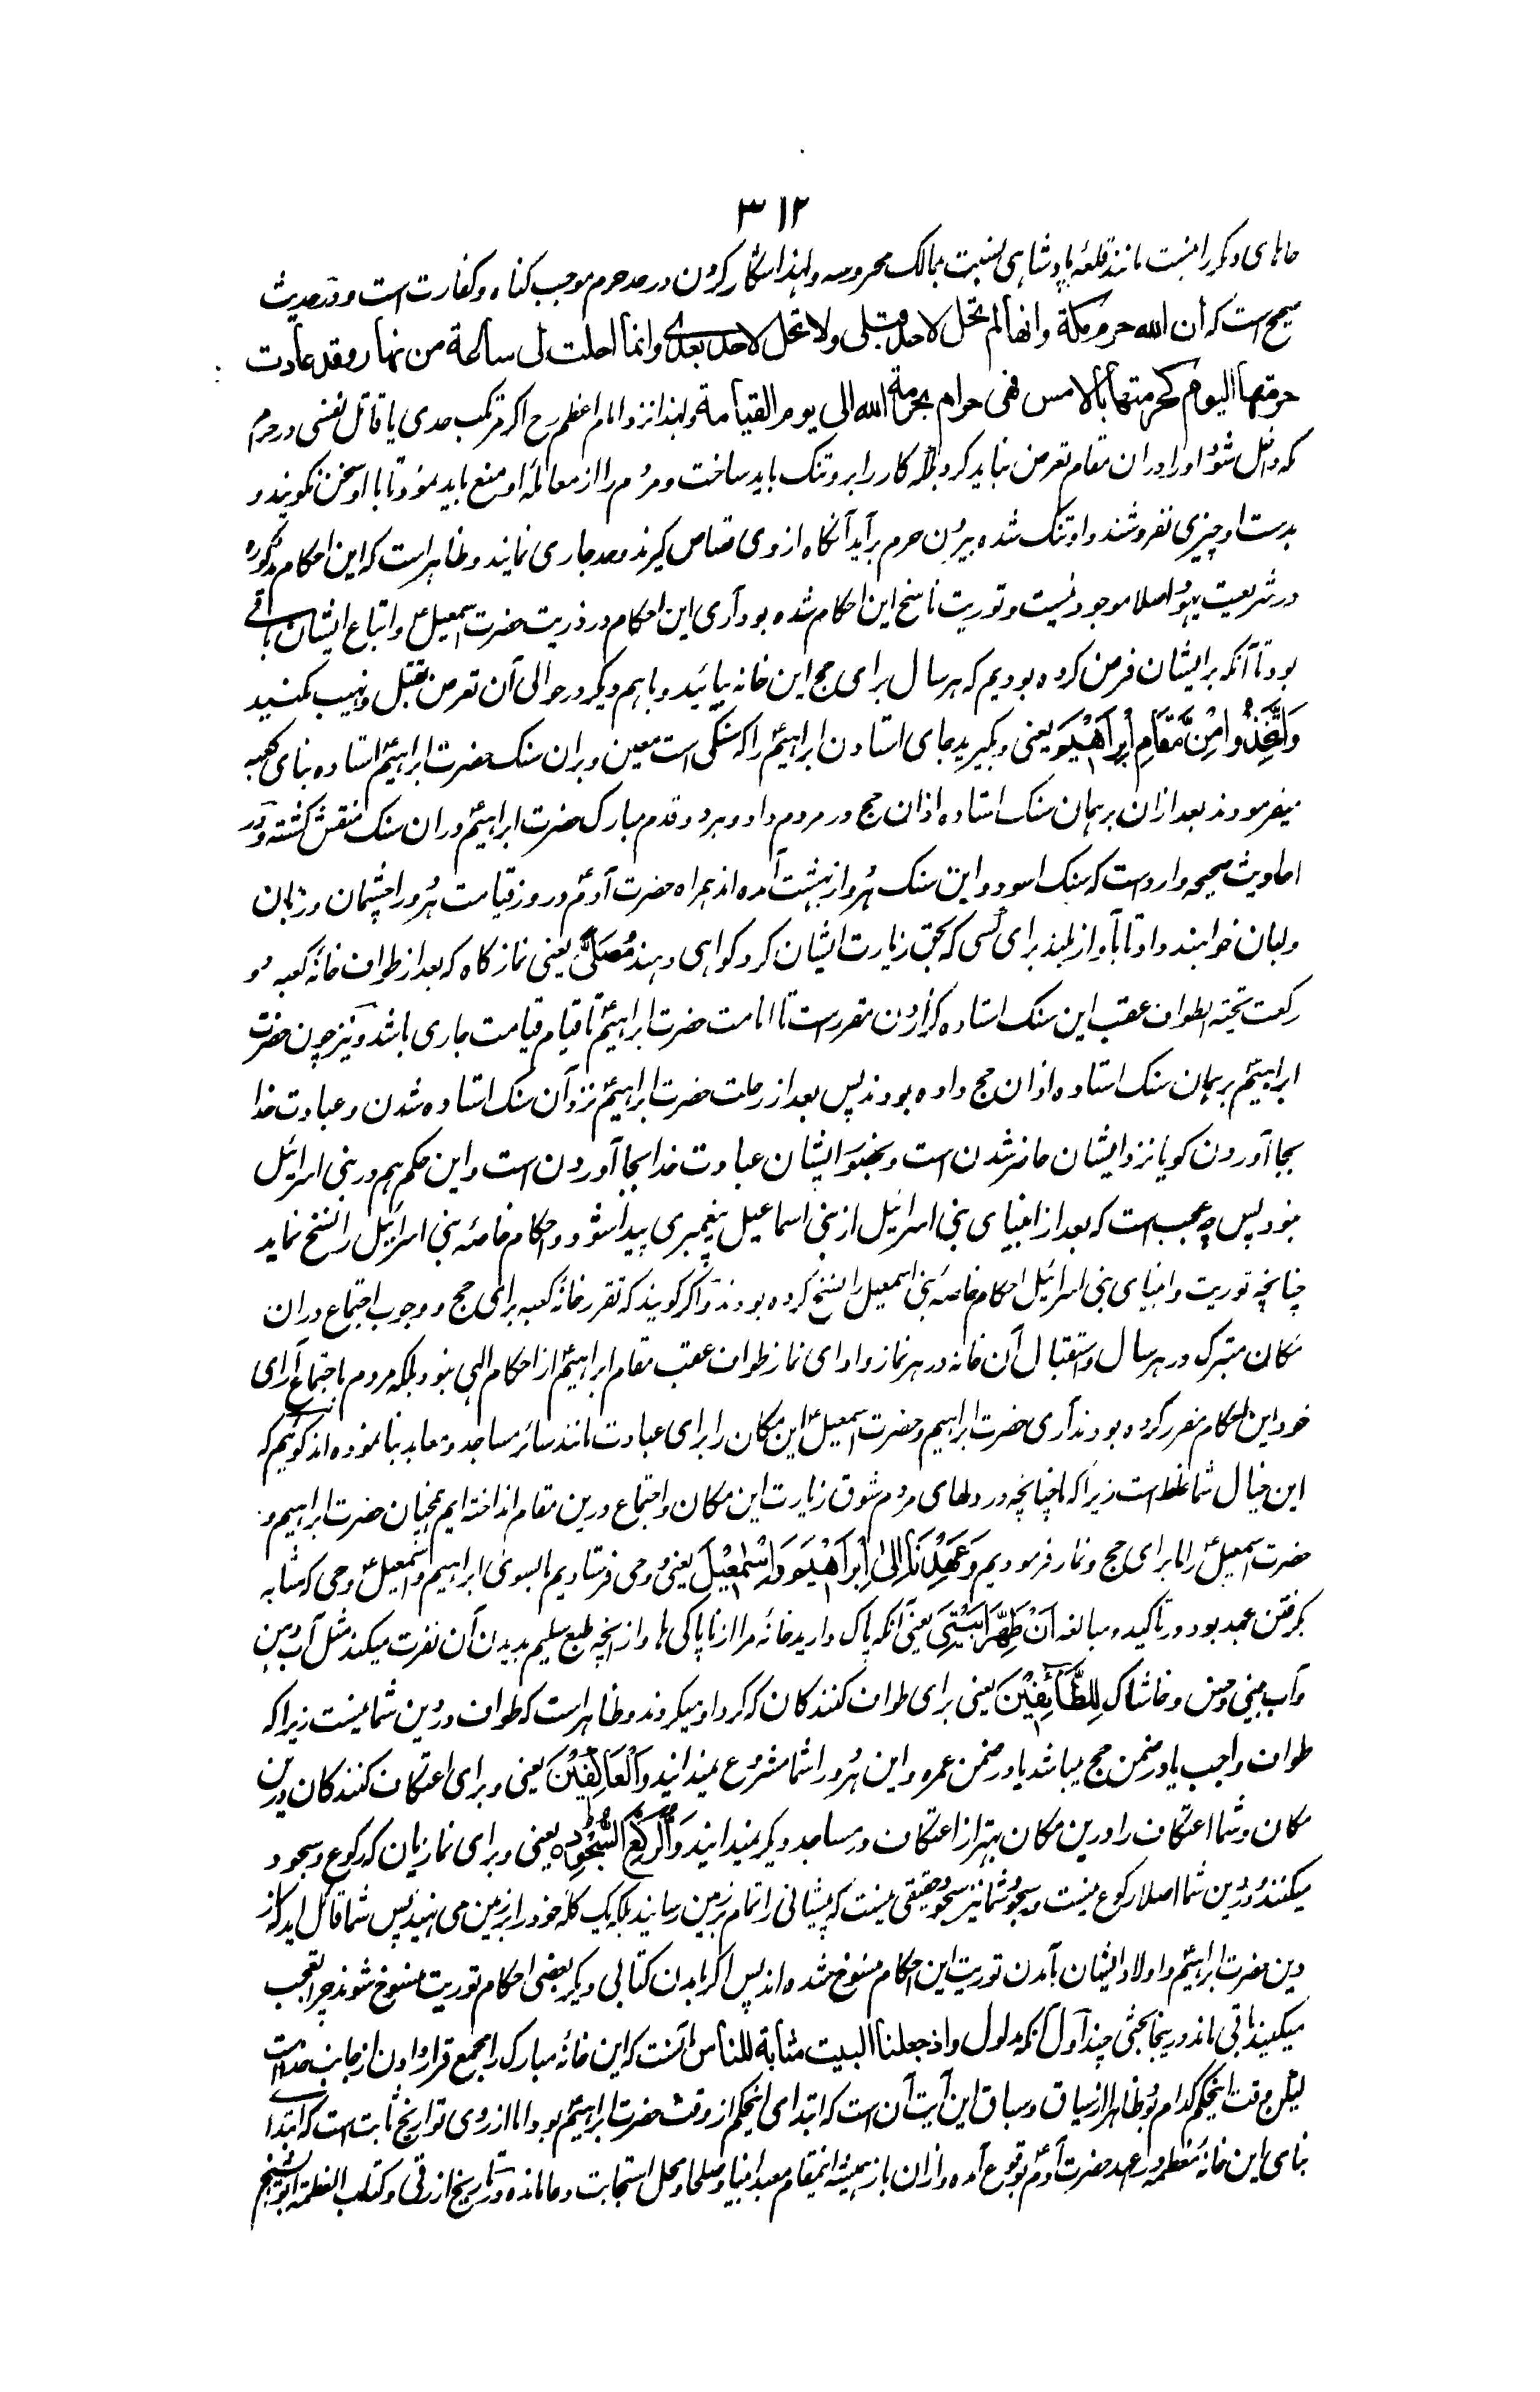 ۳۱۲
جاهای دیگر را نیست مانند قلعهٔ پادشاهی بنسبت ممالک محروسه ولهذا شکار کردن در حد حرم موجب کناه و کفارت است و در حدیث
صحیح است که ان الله حرم مکة وانها لم تحل لاحد قبلی ولا تحل لاحد بعدی وانما احلت لی ساعة من نهار وقد عادت
حرمتها الیوم کحرمتها بالامس فهی حرام بحرمة الله الی یوم القیامة ولهذا نزد امام اعظم رح اکر مرتکب حدی یا قاتل نفسی در حرم
مکه داخل شود او را دران مقام تعرض نباید کرد بلکه کار را برو تنک باید ساخت و مردم را از معامله او منع باید نمود تا با او سخن نکویند و
بدست او چیزی نفروشند و او تنک شده بیرون حرم برآید آنکاه از وی قصاص کیرند و حد جاری نمایند و ظاهر است که این احکام مذکوره
در شریعت یهود اصلا موجود نیست و توریت ناسخ این احکام شده بود آری این احکام در ذریت حضرت اسمعیلؑ و اتباع ایشان باقی
بود تا آنکه بر ایشان فرض کرده بودیم که هر سال برای حج این خانه بیائید و با هم دیکر در حوالی آن تعرض بقتل و نهیب نکنید
وَاتَّخِذُوا مِنْ مَّقَامِ اِبْرَاهِیْمَ یعنی و بکیرید جای استادن ابراهیمؑ را که سنکی است معین و بران سنک حضرت ابراهیمؑ استاده بنای کعبه
میفرمودند بعد ازان بر همان سنک استاده اذان حج در مردم داد و هر دو قدم مبارک حضرت ابراهیمؑ دران سنک منقش کشته و در
احادیث صحیحه وارد است که سنک اسود و این سنک هر دو از بهشت آمده اند همراه حضرت آدمؑ و روز قیامت هر دو را چشمان و زبان
و لبان خواهند داد تا بآواز بلند برای کسی که بحق زیارت ایشان کرد کواهی دهند مُصَلًّی یعنی نمازکاه که بعد از طواف خانهٔ کعبه دو
رکعت تحیة الطواف عقب این سنک استاده کزاردن مقرر است تا امامت حضرت ابراهیمؑ تا قیام قیامت جاری باشد و نیز چون حضرت
ابراهیمؑ بر همان سنک استاده اذان حج داده بودند پس بعد از رحلت حضرت ابراهیمؑ نزد آن سنک استاده شدن و عبادت خدا
بجا آوردن کویا نزد ایشان حاضر شدن است و بحضور ایشان عبادت خدا بجا آوردن است و این حکم هم در بنی اسرائیل
نبود پس چه عجب است که بعد از انبیای بنی اسرائیل از بنی اسماعیل پیغمبری پیدا شود و احکام خاصه بنی اسرائیل را نسخ نماید
چنانچه توریت و انبیای بنی اسرائیل احکام خاصهٔ بنی اسمعیل را نسخ کرده بودند و اکر کویند که تقرر خانهٔ کعبه برای حج و وجوب اجتماع دران
مکان متبرک در هر سال و استقبال آن خانه در هر نماز و ادای نماز طواف عقب مقام ابراهیمؑ از احکام الهی نبود بلکه مردم باجتماع آرای
خود این احکام مقرر کرده بودند آری حضرت ابراهیم و حضرت اسمعیلؑ این مکان را برای عبادت مانند سائر مساجد و معابد بنا نموده اند کوئیم که
این خیال شما غلط است زیراکه ما چنانچه در دلهای مردم شوق زیارت این مکان و اجتماع درین مقام انداخته ایم همچنان حضرت ابراهیم و
حضرت اسمعیلؑ را ما برای حج و نماز فرمودیم وَعَهِدْنَا اِلیٰ اِبْرَاهِیْمَ وَاِسْمٰعِیْلَ یعنی وحی فرستادیم ما بسوی ابراهیم و اسمعیلؑ وحی که مشابه
بکرفتن عهد بود در تاکید و مبالغه اَنْ طَهِّرَا بَیْتِیَ یعنی آنکه پاک دارید خانهٔ مرا از ناپاکی ها و از انچه طبع سلیم بدیدن آن نفرت میکند مثل آب دهن
و آب بینی و خس و خاشاک لِلطَّائِفِیْنَ یعنی برای طواف کنندکان که کرد او میکردند و ظاهر است که طواف در دین شما نیست زیراکه
طواف واجب یا در ضمن حج میباشد یا در ضمن عمره و این هر دو را شما مشروع نمیدانید وَالْعَاکِفِیْنَ یعنی و برای اعتکاف کنندکان درین
مکان و شما اعتکاف را درین مکان بهتر از اعتکاف در مساجد دیکر نمیدانید وَالرُّکَّعِ السُّجُوْدِ یعنی و برای نمازیان که رکوع و سجود
میکنند و در دین شما اصلا رکوع نیست و سجود شما نیز سجود حقیقی نیست که پیشانی را تمام بزمین رسانید بلکه یک کله خود را بزمین می نهید پس شما قائل اید که از
دین حضرت ابراهیمؑ و اولاد ایشان بآمدن توریت این احکام منسوخ شده اند پس اکر بآمدن کتابی دیکر بعضی احکام توریت منسوخ شوند چرا تعجب
میکنید باقی ماند درینجا بحثی چند اول آنکه مدلول واذ جعلنا البیت مثابة للناس آنست که این خانهٔ مبارک را مجمع قرار دادن از جانب خداست
لیکن وقت اینحکم کدام بود ظاهر از سیاق و سباق این آیت آن است که ابتدای اینحکم از وقت حضرت ابراهیمؑ بود اما از روی تواریخ ثابت است که ابتدای
بنای این خانهٔ معظمه در عهد حضرت آدمؑ بوقوع آمده و ازان باز همیشه اینمقام معبد انبیا و صلحا و محل استجابت دعا مانده و در تاریخ ازرقی و کتاب العظمه ابوالشیخ